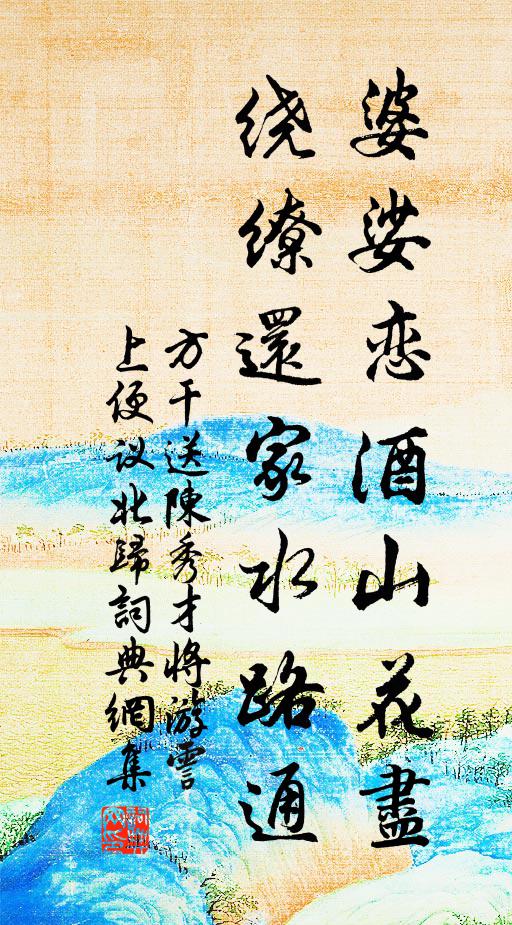 婆娑恋酒山花盡
绕缭還家水路通
方干送陳秀才将游霅
上便议北歸詞典網集